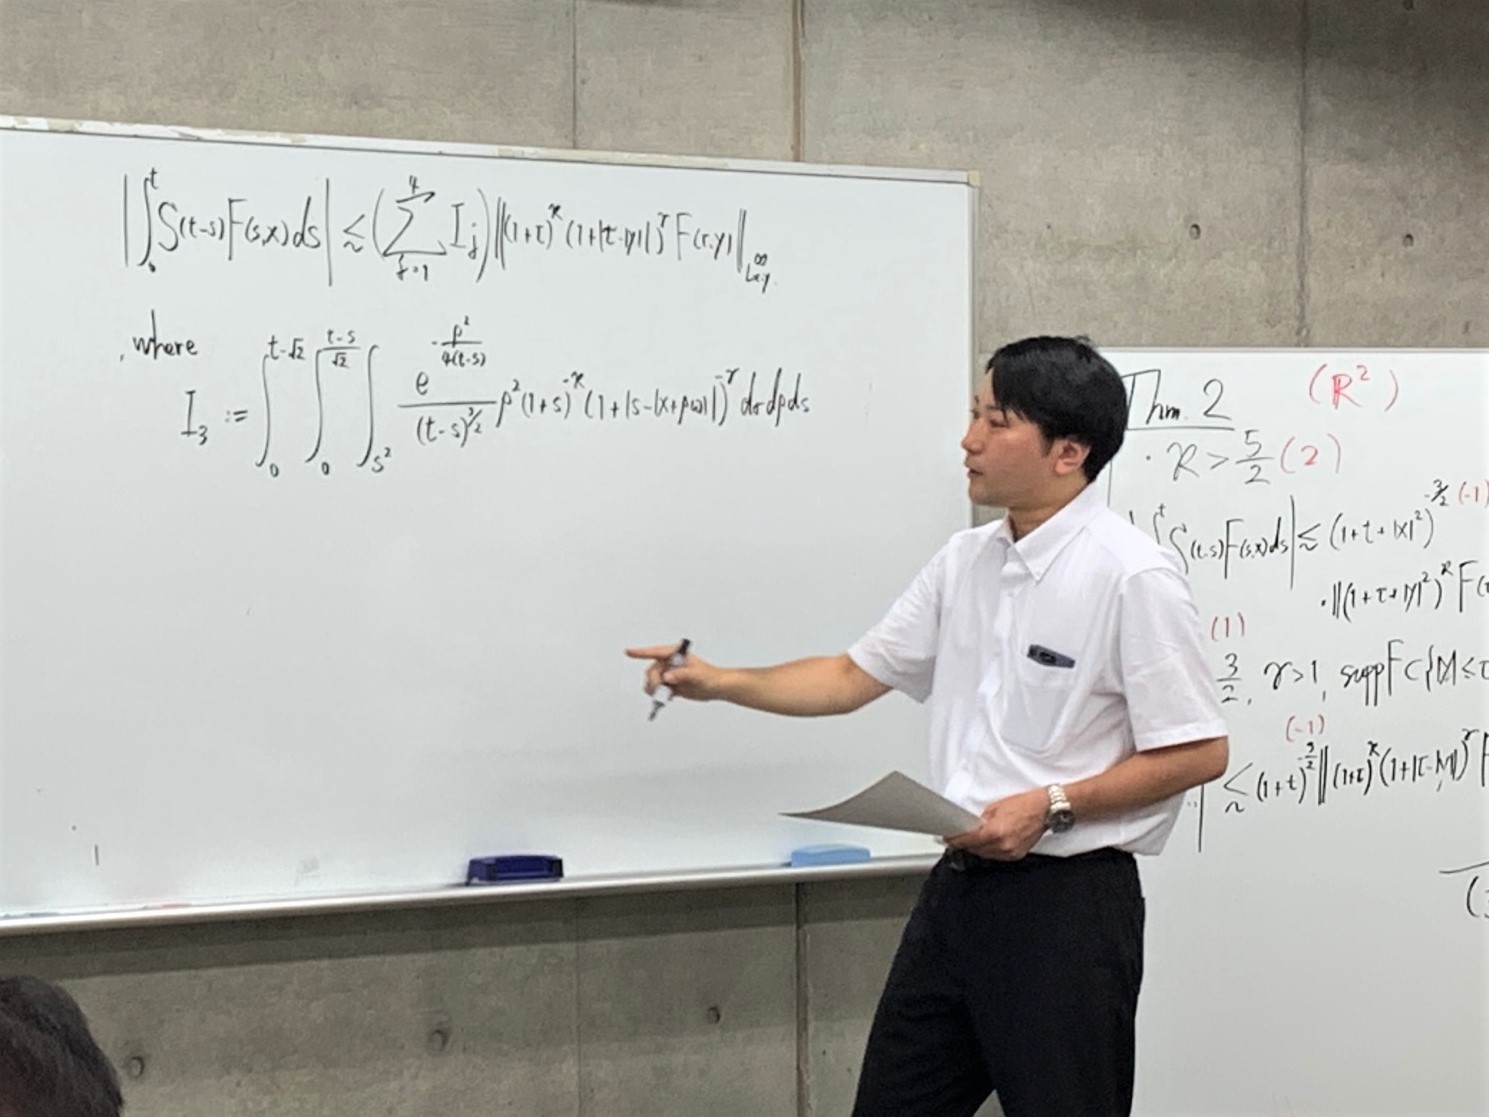 |∫₀ᵗ S(t-s)F(s,x)ds| ≲ (∑_{j=1}^{4} I_j) ‖(1+τ)^κ (1+|τ-|y||)^γ F(τ,y)‖_{L^∞_{τ,y}}
, where
I₃ := ∫₀^{t-√2} ∫₀^{(t-s)/√2} ∫_{S²} e^{-ρ²/4(t-s)}/(t-s)^{3/2} ρ² (1+s)^{-κ} (1+|s-|x+ρω||)^{-γ} dσdρds
Thm. 2 (ℝ²)
· κ > 5/2 (2)
|∫ᵗ S(t-s)F(s,x)ds| ≲ (1+t+|x|²)^{-3/2 (-1)}
·‖(1+τ+|y|²)^κ F(τ
(1)
3/2, γ>1, supp F ⊂ {|y| ≤ τ
(-1)
| ≲ (1+t)^{-3/2} ‖(1+τ)^κ (1+|τ-|y||)^γ F